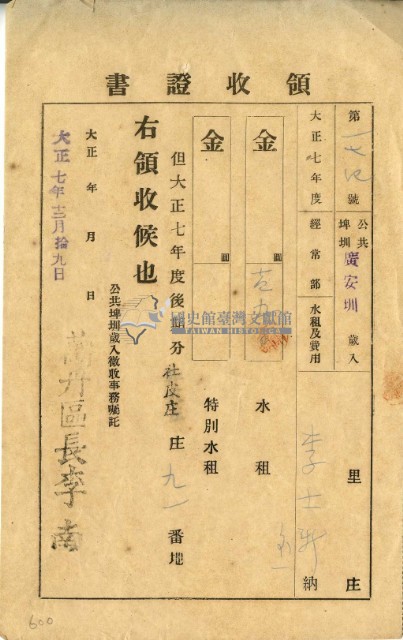 領收證書
第 號
公共埤圳 廣安圳 歲入
大正七年度 經常部 水租及費用
里 庄
李士 納
金 圓 水租
金 圓 特別水租
但大正七年度後期分 社皮庄 庄 九一 番地
右領收候也
大正 年 月 日
大正七年十二月拾九日
公共埤圳歲入徵收事務囑託
萬丹區長李南
國史館臺灣文獻館
TAIWAN HISTORICA
600